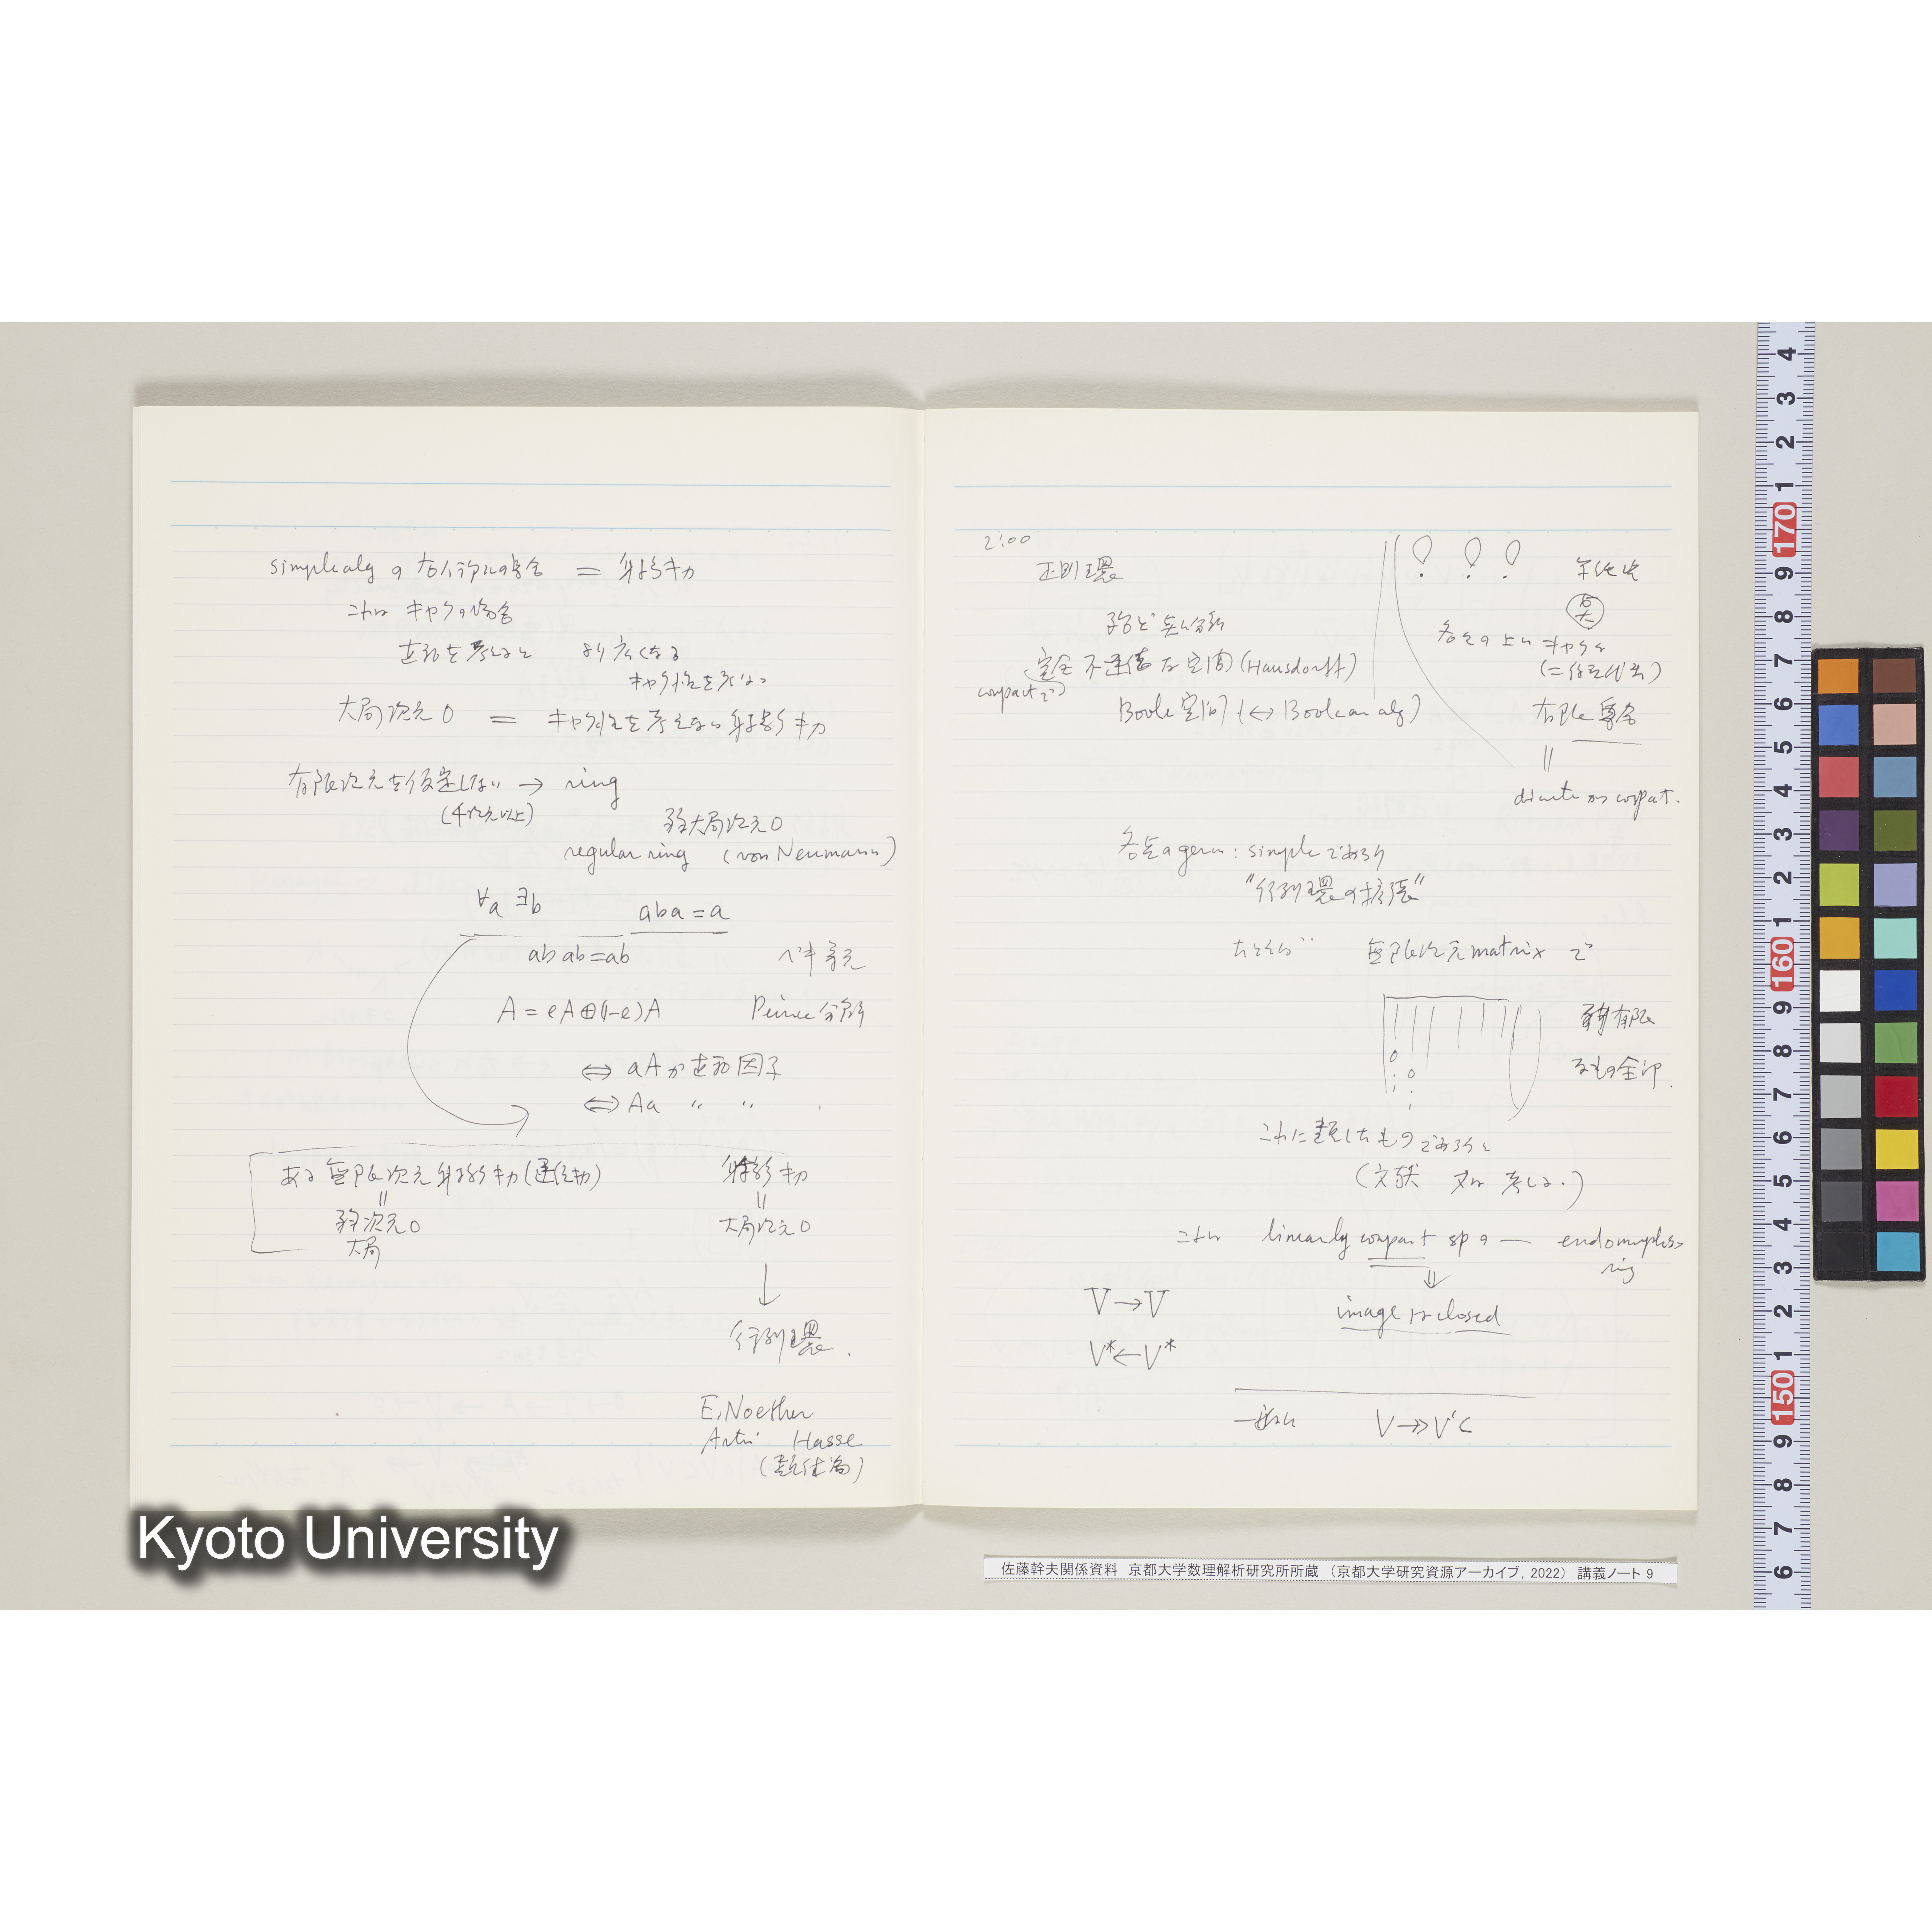 simple alg の右イデアルの集合 = 射影キカ
これは キヤクの場合
直和を考えると より広くなる
キヤク性を考えない
大局次元 0 = キヤク性を考えない射影キカ
有限次元を仮定しない → ring
(4次元以上)
弱大局次元 0
regular ring (von Neumann)
∀a ∃b aba = a
ab ab = ab ベキ等元
A = eA ⊕ (1-e)A Peirce 分解
⇔ aA が直和因子
⇔ Aa 〃 〃
ある無限次元射影キカ(連続キカ) 射影キカ
|| ||
弱次元 0 大局次元 0
大局
↓
行列環.
E. Noether
Artin Hasse
(数体論)
2:00
正則環
完全不連結な空間 (Hausdorff)
compact で
Boole 空間 (↔ Boolean alg)
半単純
点
各点の上に キヤク
有限集合
||
discrete かつ compact.
各点の germ : simple であろう
"行列環の拡張"
たとえば 無限次元 matrix で
列有限
なもの全部.
これに類したものであろう
(文献 又は 考えよ.)
これは linearly compact sp の — endomorphism
ring
⇓
V → V image は closed
V* ← V*
一般に V ↠ V' ⊂
Kyoto University
佐藤幹夫関係資料 京都大学数理解析研究所所蔵 (京都大学研究資源アーカイブ, 2022) 講義ノート 9
4 3 2 1 170 9 8 7 6 5 4 3 2 1 160 9 8 7 6 5 4 3 2 1 150 9 8 7 6